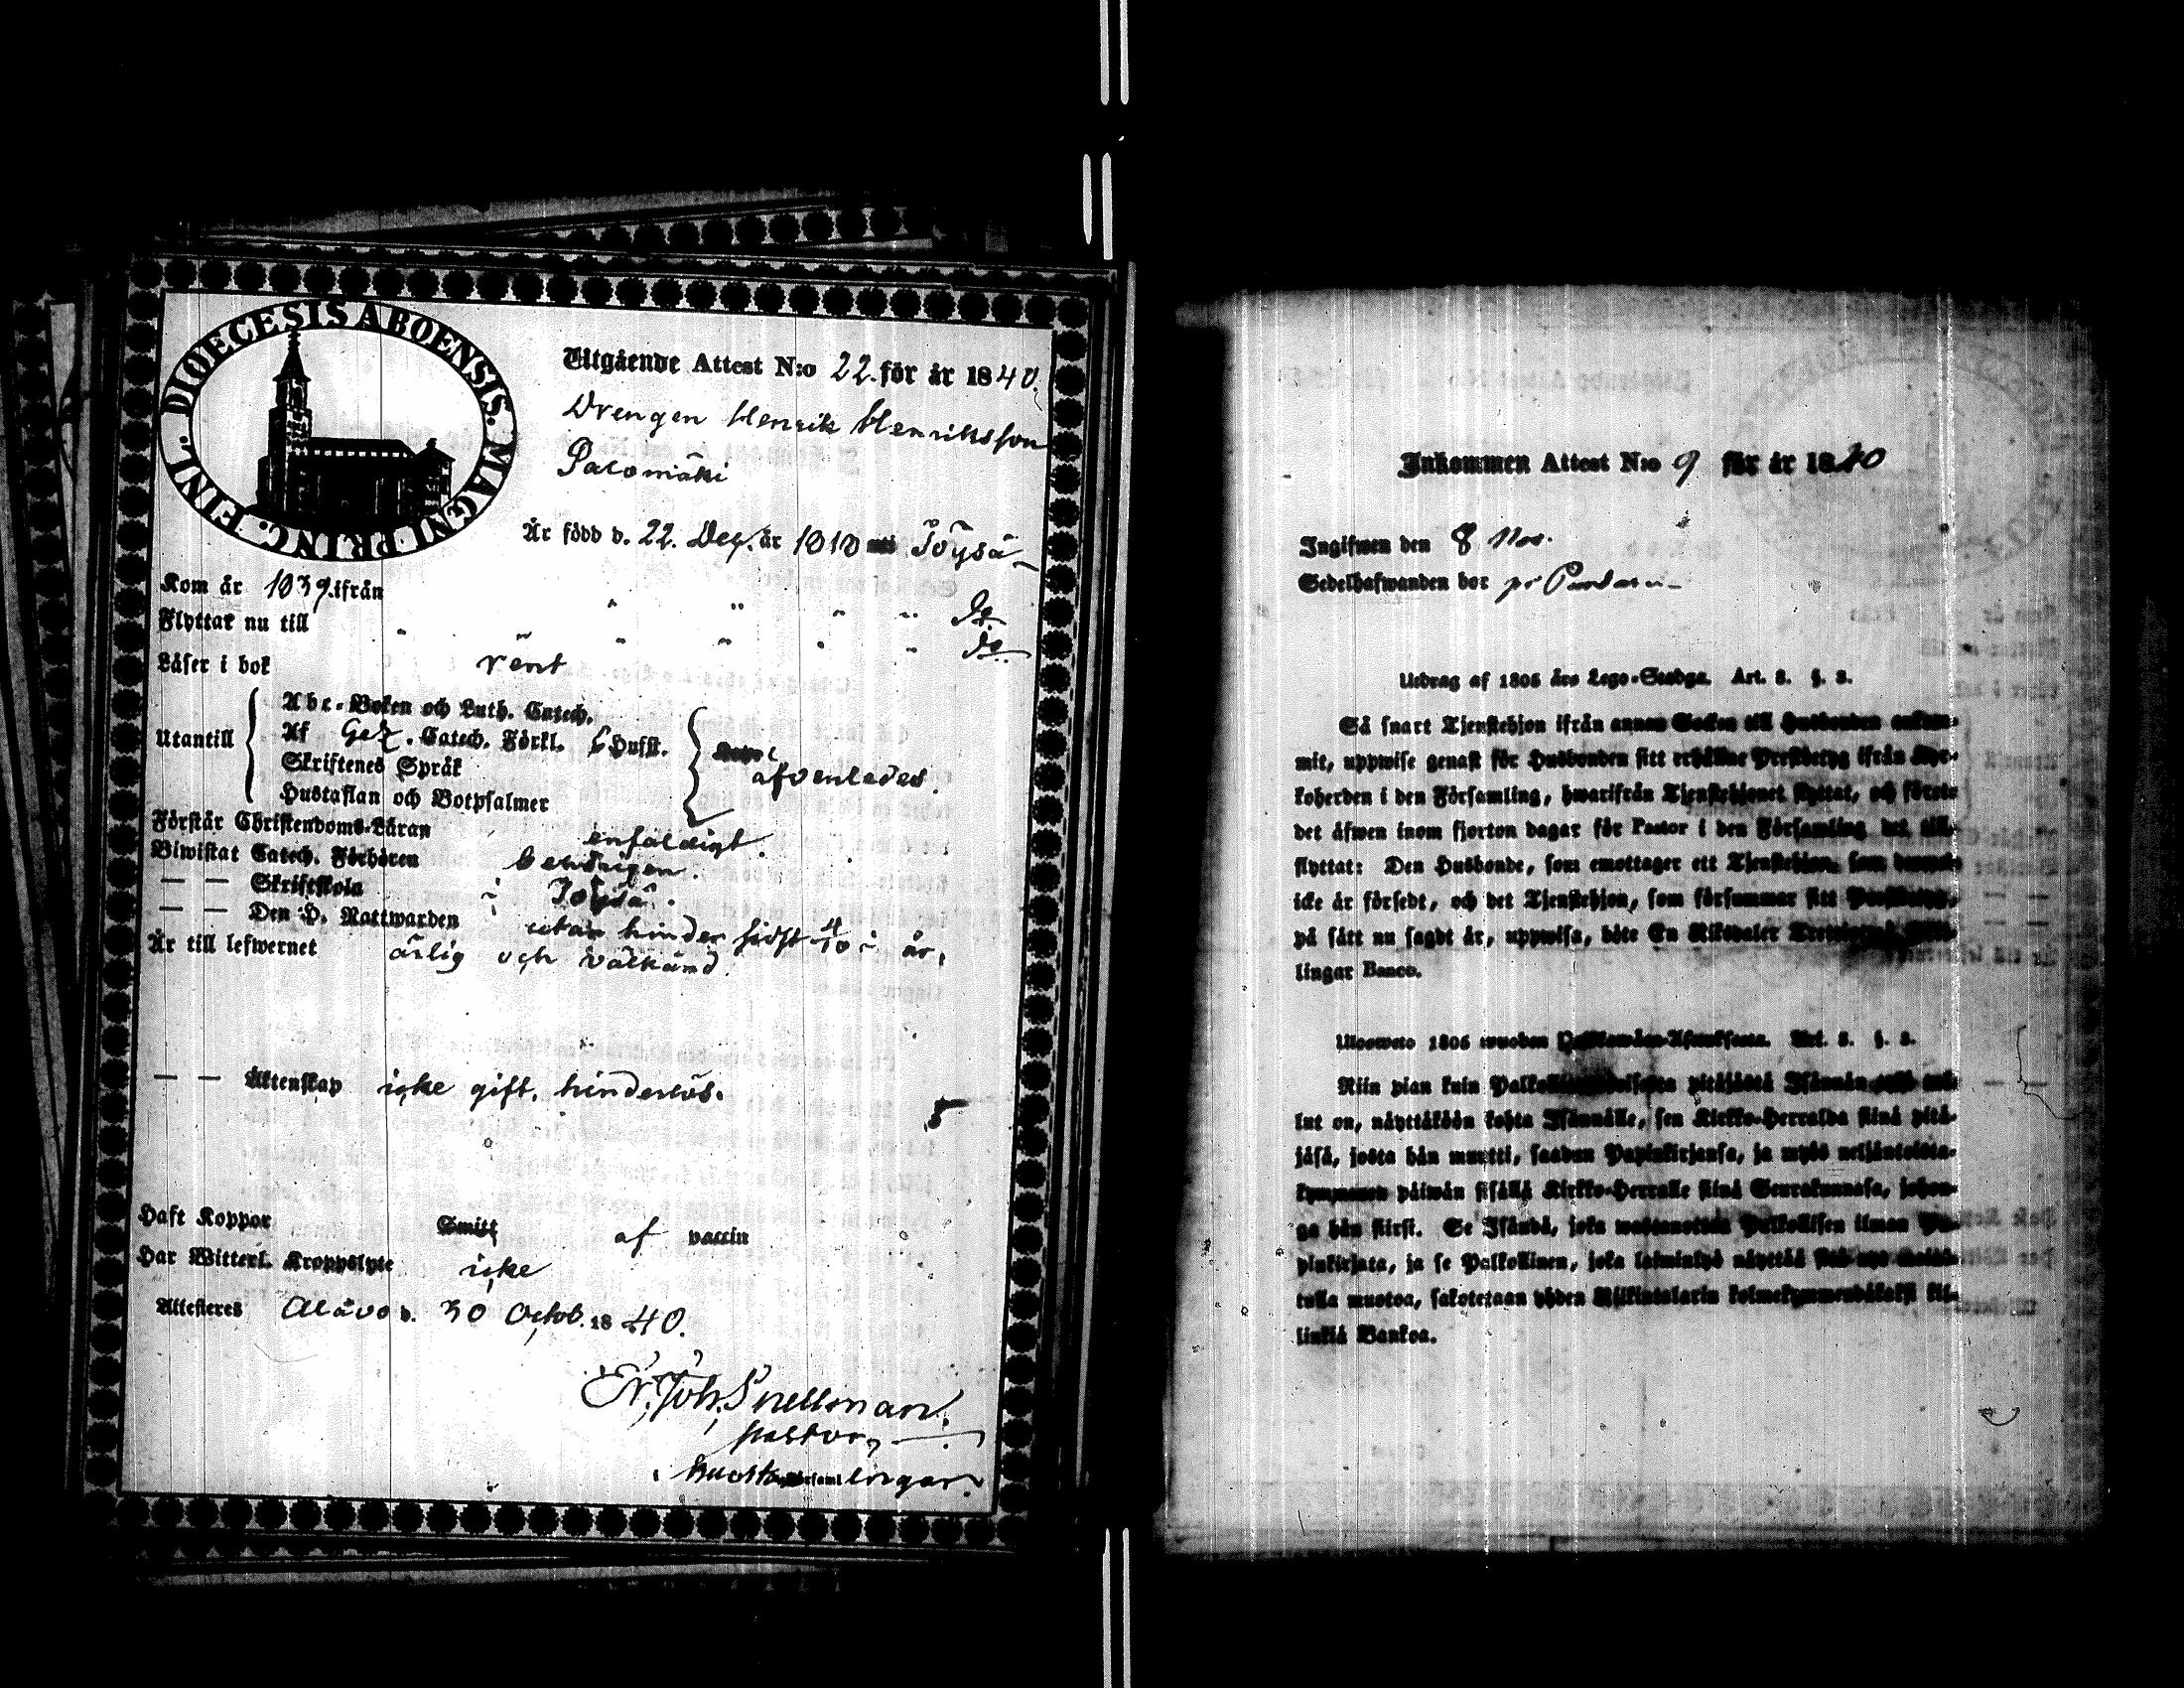 DIOECESIS ABOENSIS. MAGNI PRINC. FINL.
Utgående Attest N:o 22. för år 1840.
Drengen Henrik Henriksson
Salomäki
Är född d. 22. Dec. år 1818 uti Töysä
Kom år 1839. ifrån " " " " Do
Flyttar nu till " " " " " " Do
Läser i bok rent
Utantill
Abc-Boken och Luth. Catech.
Af Gez. Catech. Förkl. Hussl.
Skriftenes Språk
Hustaflan och Botpsalmer
afvenledes.
Förstår Christendoms-Läran enfaldigt.
Biwistat Catech. Förhören behörigen.
— — Skriftskola i Töysä.
— — Den H. Nattwarden utan hinder sidst i år.
Är till lefwernet ärlig och välkänd.
— — Äktenskap icke gift, hinderlös.
Haft Koppor af vaccin
Har Witterl. Kroppslyte icke
Attesteres Alavo d. 30 Octob. 1840.
Joh. Snellman.
pastor
Inkommen Attest N:o 9 för år 1840
Ingifwen den 8 Nov.
Sedelhafwanden bor på
Utdrag af 1805 års Lego-Stadga. Art. 8. §. 3.
Så snart Tjenstehjon ifrån annan Socken till Husbonden ankom-
mit, uppwise genast för Husbonden sitt erhållne Prestbetyg ifrån Kyr-
koherden i den Församling, hwarifrån Tjenstehjonet flyttat, och förete
det äfwen inom fjorton dagar för Pastor i den Församling det till-
flyttat: Den Husbonde, som emottager ett Tjenstehjon, som
icke är försedt, och det Tjenstehjon, som försummar sitt Prestbetyg,
på sätt nu sagdt är, uppwisa, böte En Riksdaler
lingar Banco.
Ulosweto 1805 wuoden Art. 8. §. 3.
Niin pian kuin pitäjästä Isännän
lut on, näyttäköön kohta Isännälle, sen Kirkko-Herralda siinä pitä-
jäsä, josta hän muutti, saadun Papinkirjansa, ja myös neljäntoista-
kymmenen päiwän sisällä Kirkko-Herralle siinä Seurakunnasa, johon-
ga hän siirsi. Se Isändä, joka wastanottaa Palkollisen ilman Pa-
pinkirjata, ja se Palkollinen, joka laiminlyö näyttää
tulla muotoa, sakotetaan yhden Riikintalarin kolmekymmendäkaksi kil-
linkiä Bankoa.